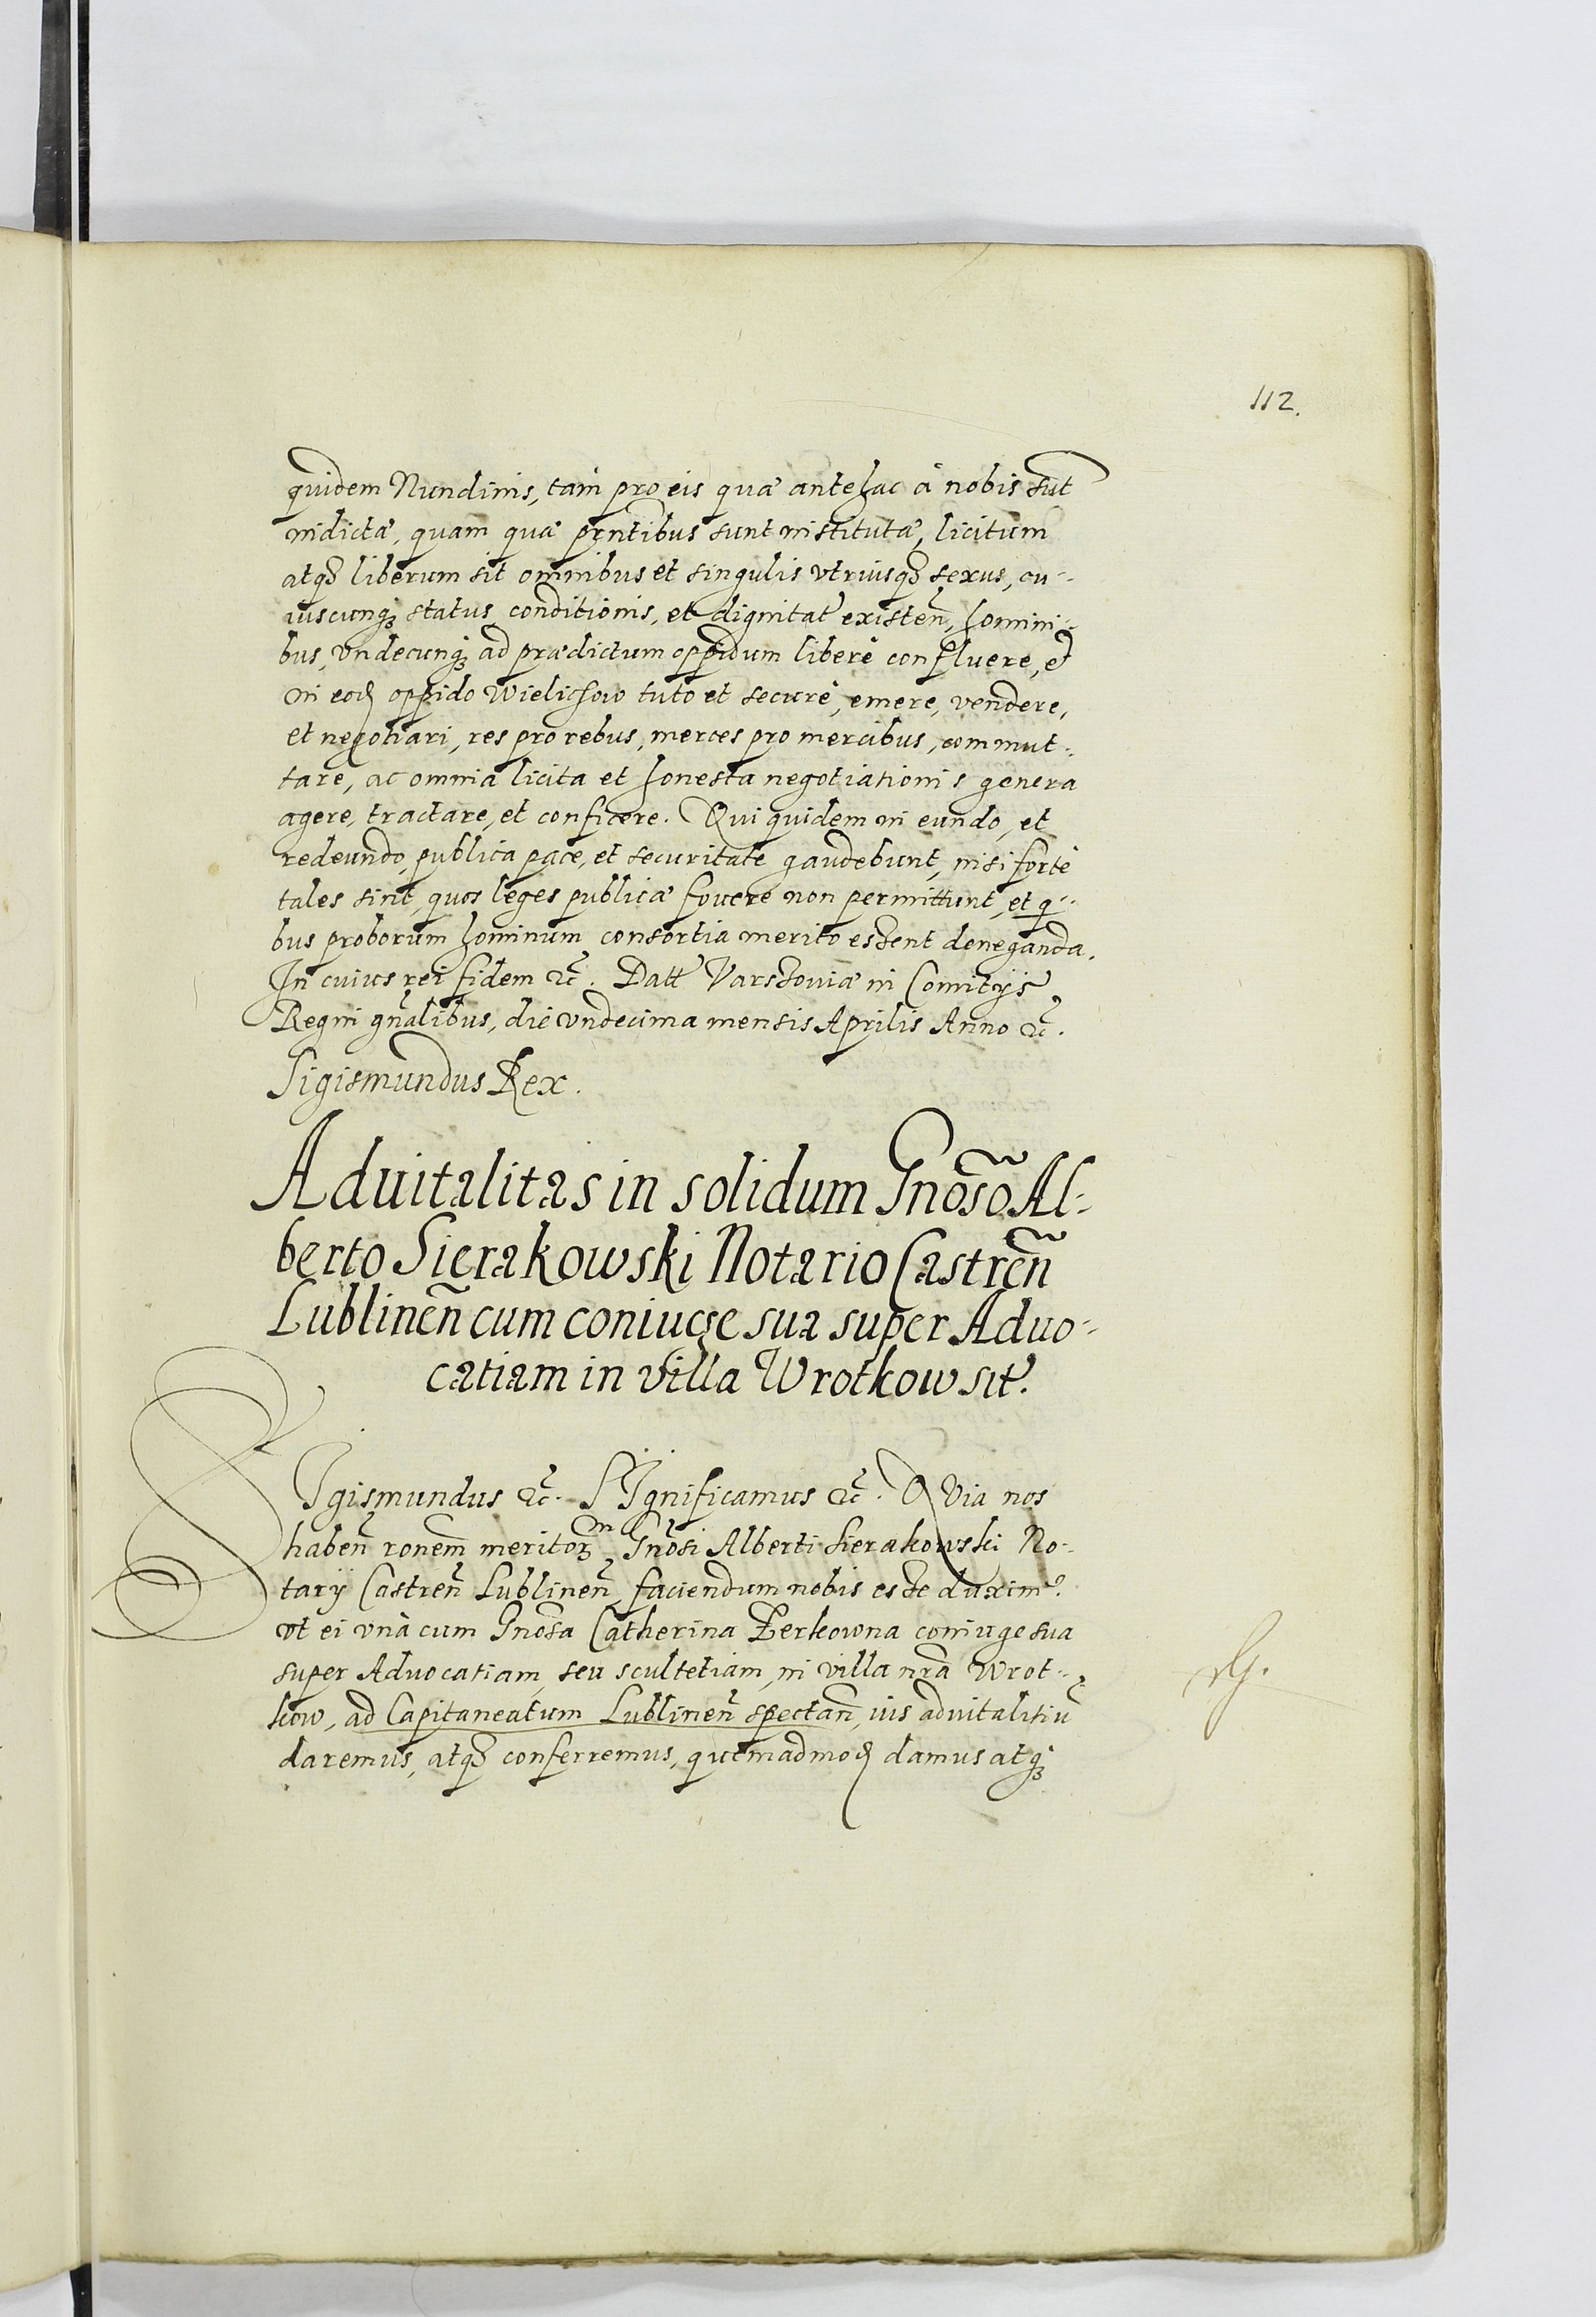 112.
quidem Nundinis, tam pro eis quæ antehac à nobis sūt
indictæ, quam quæ pn̄tibus sunt institutæ, licitum
atq₃ liberum sit omnibus et singulis vtriusq₃ sexus, cu-
iuscunq₃ status, conditionis, et dignitat̄ existen̄, homini-
bus, vndecunq₃ ad prædictum oppidum liberè confluere, et
in eod̄ oppido Wielichow tuto et securè, emere, vendere,
et negotiari, res pro rebus, merces pro mercibus, commut-
tare, ac omnia licita et honesta negotiationis genera
agere, tractare, et conficere. Qui quidem in eundo, et
redeundo, publica pace, et securitate gaudebunt, nisi fortè
tales sint, quos leges publicæ fovere non permittunt, et q̄-
bus proborum hominum consortia merito essent deneganda.
In cuius rei fidem &c̄. Datt̄ Varssoviæ in Comitijs
Regni gn̄alibus, die vndecima mensis Aprilis Anno &c̄.
Sigismundus Rex.
Advitalitas in solidum Gnōso Al-
berto Sierakowski Notario Castren̄
Lublinen̄ cum coniuge sua super Advo-
catiam in villa Wrotkow sit̄.
SIgismundus &c̄. SIgnificamus &c̄. QVia nos
haben̄ rōnem meritor₃ Gnōsi Alberti Sierakowski No-
tarÿ Castren̄ Lublinen̄, faciendum nobis esse duximꝰ
vt ei vnà cum Gnōsa Catherina Zerkowna coniuge sua
super Advocatiam, seu scultetiam, in villa nr̄a Wrot-
kow, ad Capitaneatum Lublinen̄ spectan̄, ius advitalitiū
daremus, atq₃ conferremus, quemadmod̄ damus atq₃